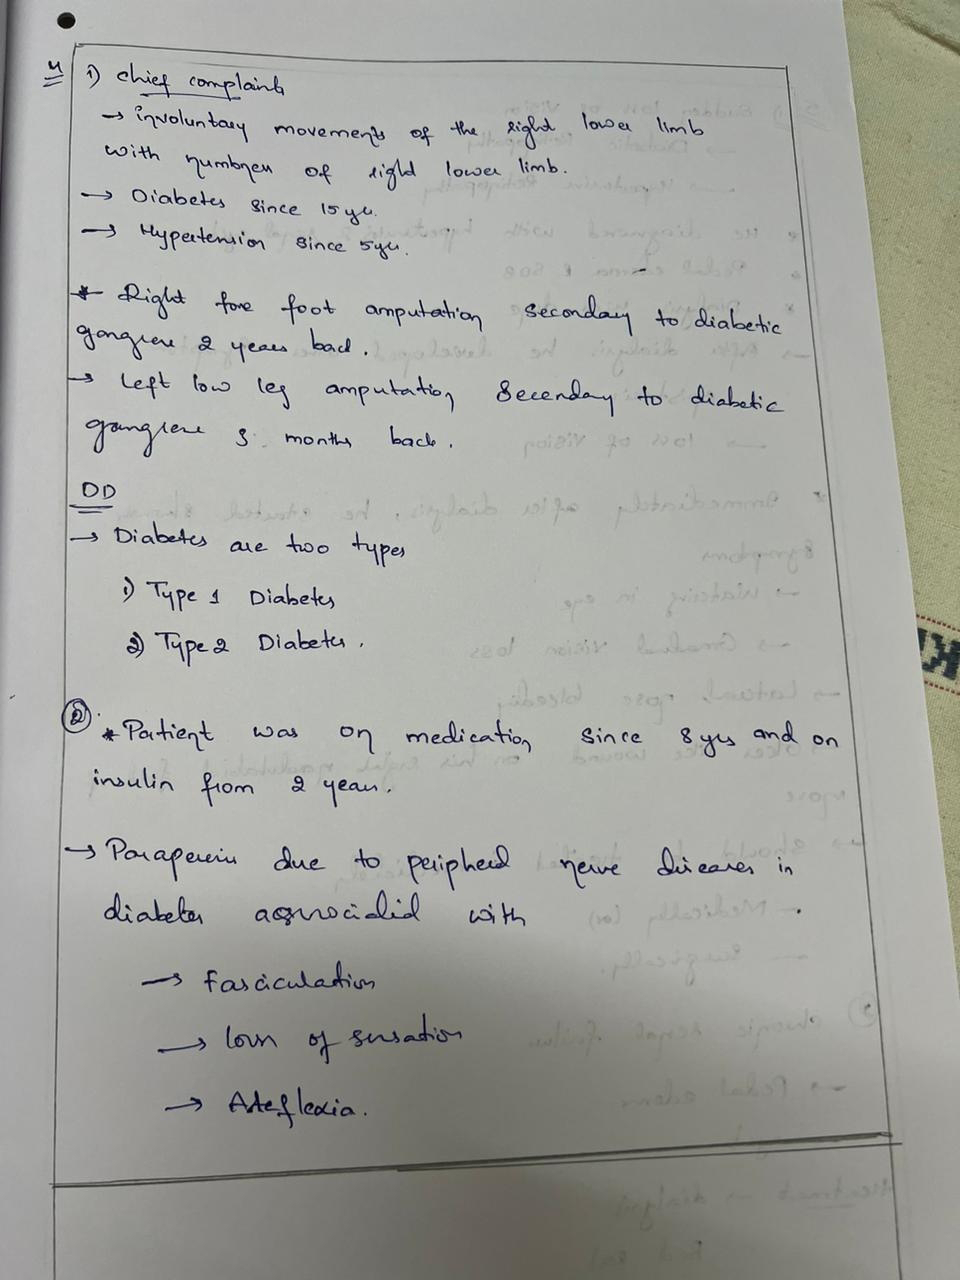 4
1) Chief complaints
→ involuntary movements of the right lower limb
with numbness of right lower limb.
→ Diabetes since 15 yr.
→ Hypertension since 5yr.
* Right fore foot amputation secondary to diabetic
gangrene 2 years back.
→ Left low leg amputation Secendary to diabetic
gangrene 3 months back.
DD
→ Diabetes are two types
1) Type 1 Diabetes
2) Type 2 Diabetes.
② * Patient was on medication since 8 yrs and on
insulin from 2 years.
→ due to peripheral nerve diseases in
diabetes with
→ Fasciculation
→ loss of sensation
→ Areflexia.